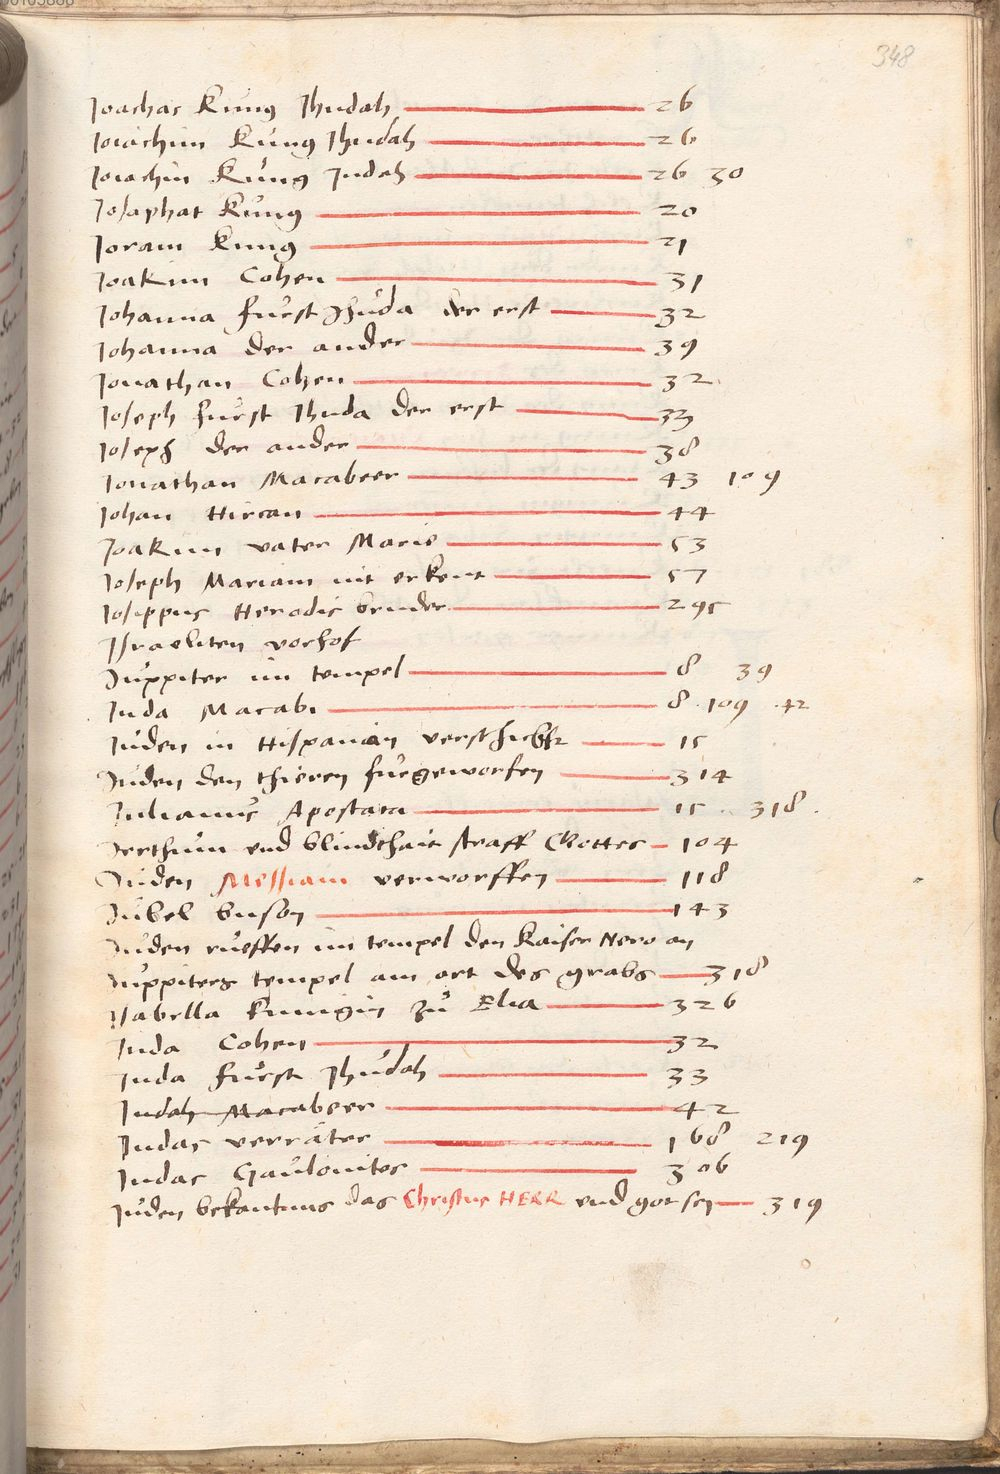 348
Joachas Kung Jhudah 26
Joiachim Kung Jhudah 26
Joiachin Kung Judah 26 30
Josaphat Kung 20
Joram Kung 21
Joakim Cohen 31
Johanna furst Jhuda der erst 32
Johanna der ander 39
Jonathan Cohen 32
Joseph furst Jhuda der erst 33
Joseph der ander 38
Jonathan Macabeer 43 109
Johan Hircan 44
Joakim vater Marie 53
Joseph Mariam nit erkent 57
Joseppus Herodis bruder 295
Jsraeliten vorhof
Juppiter im tempel 8 39
Juda Macabi 8 . 109 . 42
Juden in Hispanian verschickt 15
Juden den thieren furgeworfen 314
Julianus Apostata 15 . 318 .
Jrrthum und blindthait straff Gottes 104
Juden Messiam verworffen 118
Jubel buson 143
Juden rueffen im tempel den Kaiser Nero an
Juppiters tempel am ort des grabs 318
Jsabella Kunigin zu Elia 326
Juda Cohen 32
Juda furst Jhudah 33
Judah Macabeer 42
Judas verräter 168 219
Judas Gaulonites 306
Juden bekantnus das Christus HERR und got sey 319